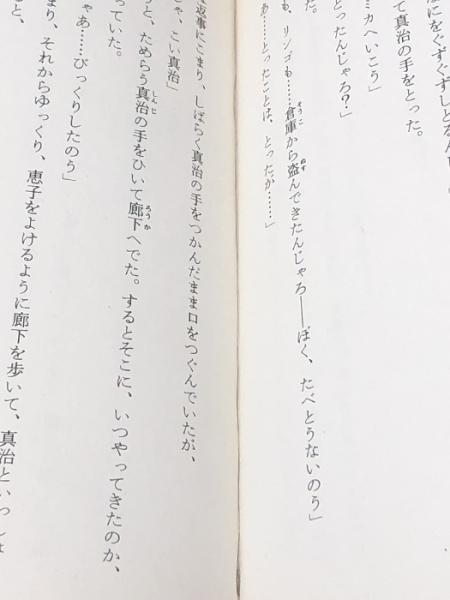 にをぐずぐずしとるん
て真治の手をとった。
カへいこう」
とったんじゃろ?」
た。
も、リンゴも……倉庫から盗んできたんじゃろ――ぼく、たべとうないのう」
あ……とったことは、とったか……」
事にこまり、しばらく真治の手をつかんだまま口をつぐんでいたが、
、こい真治」
うと、ためらう真治の手をひいて廊下へでた。するとそこに、いつやってきたのか、
っていた。
ゃあ……びっくりしたのう」
まり、それからゆっくり、恵子をよけるように廊下を歩いて、真治といっし
と、